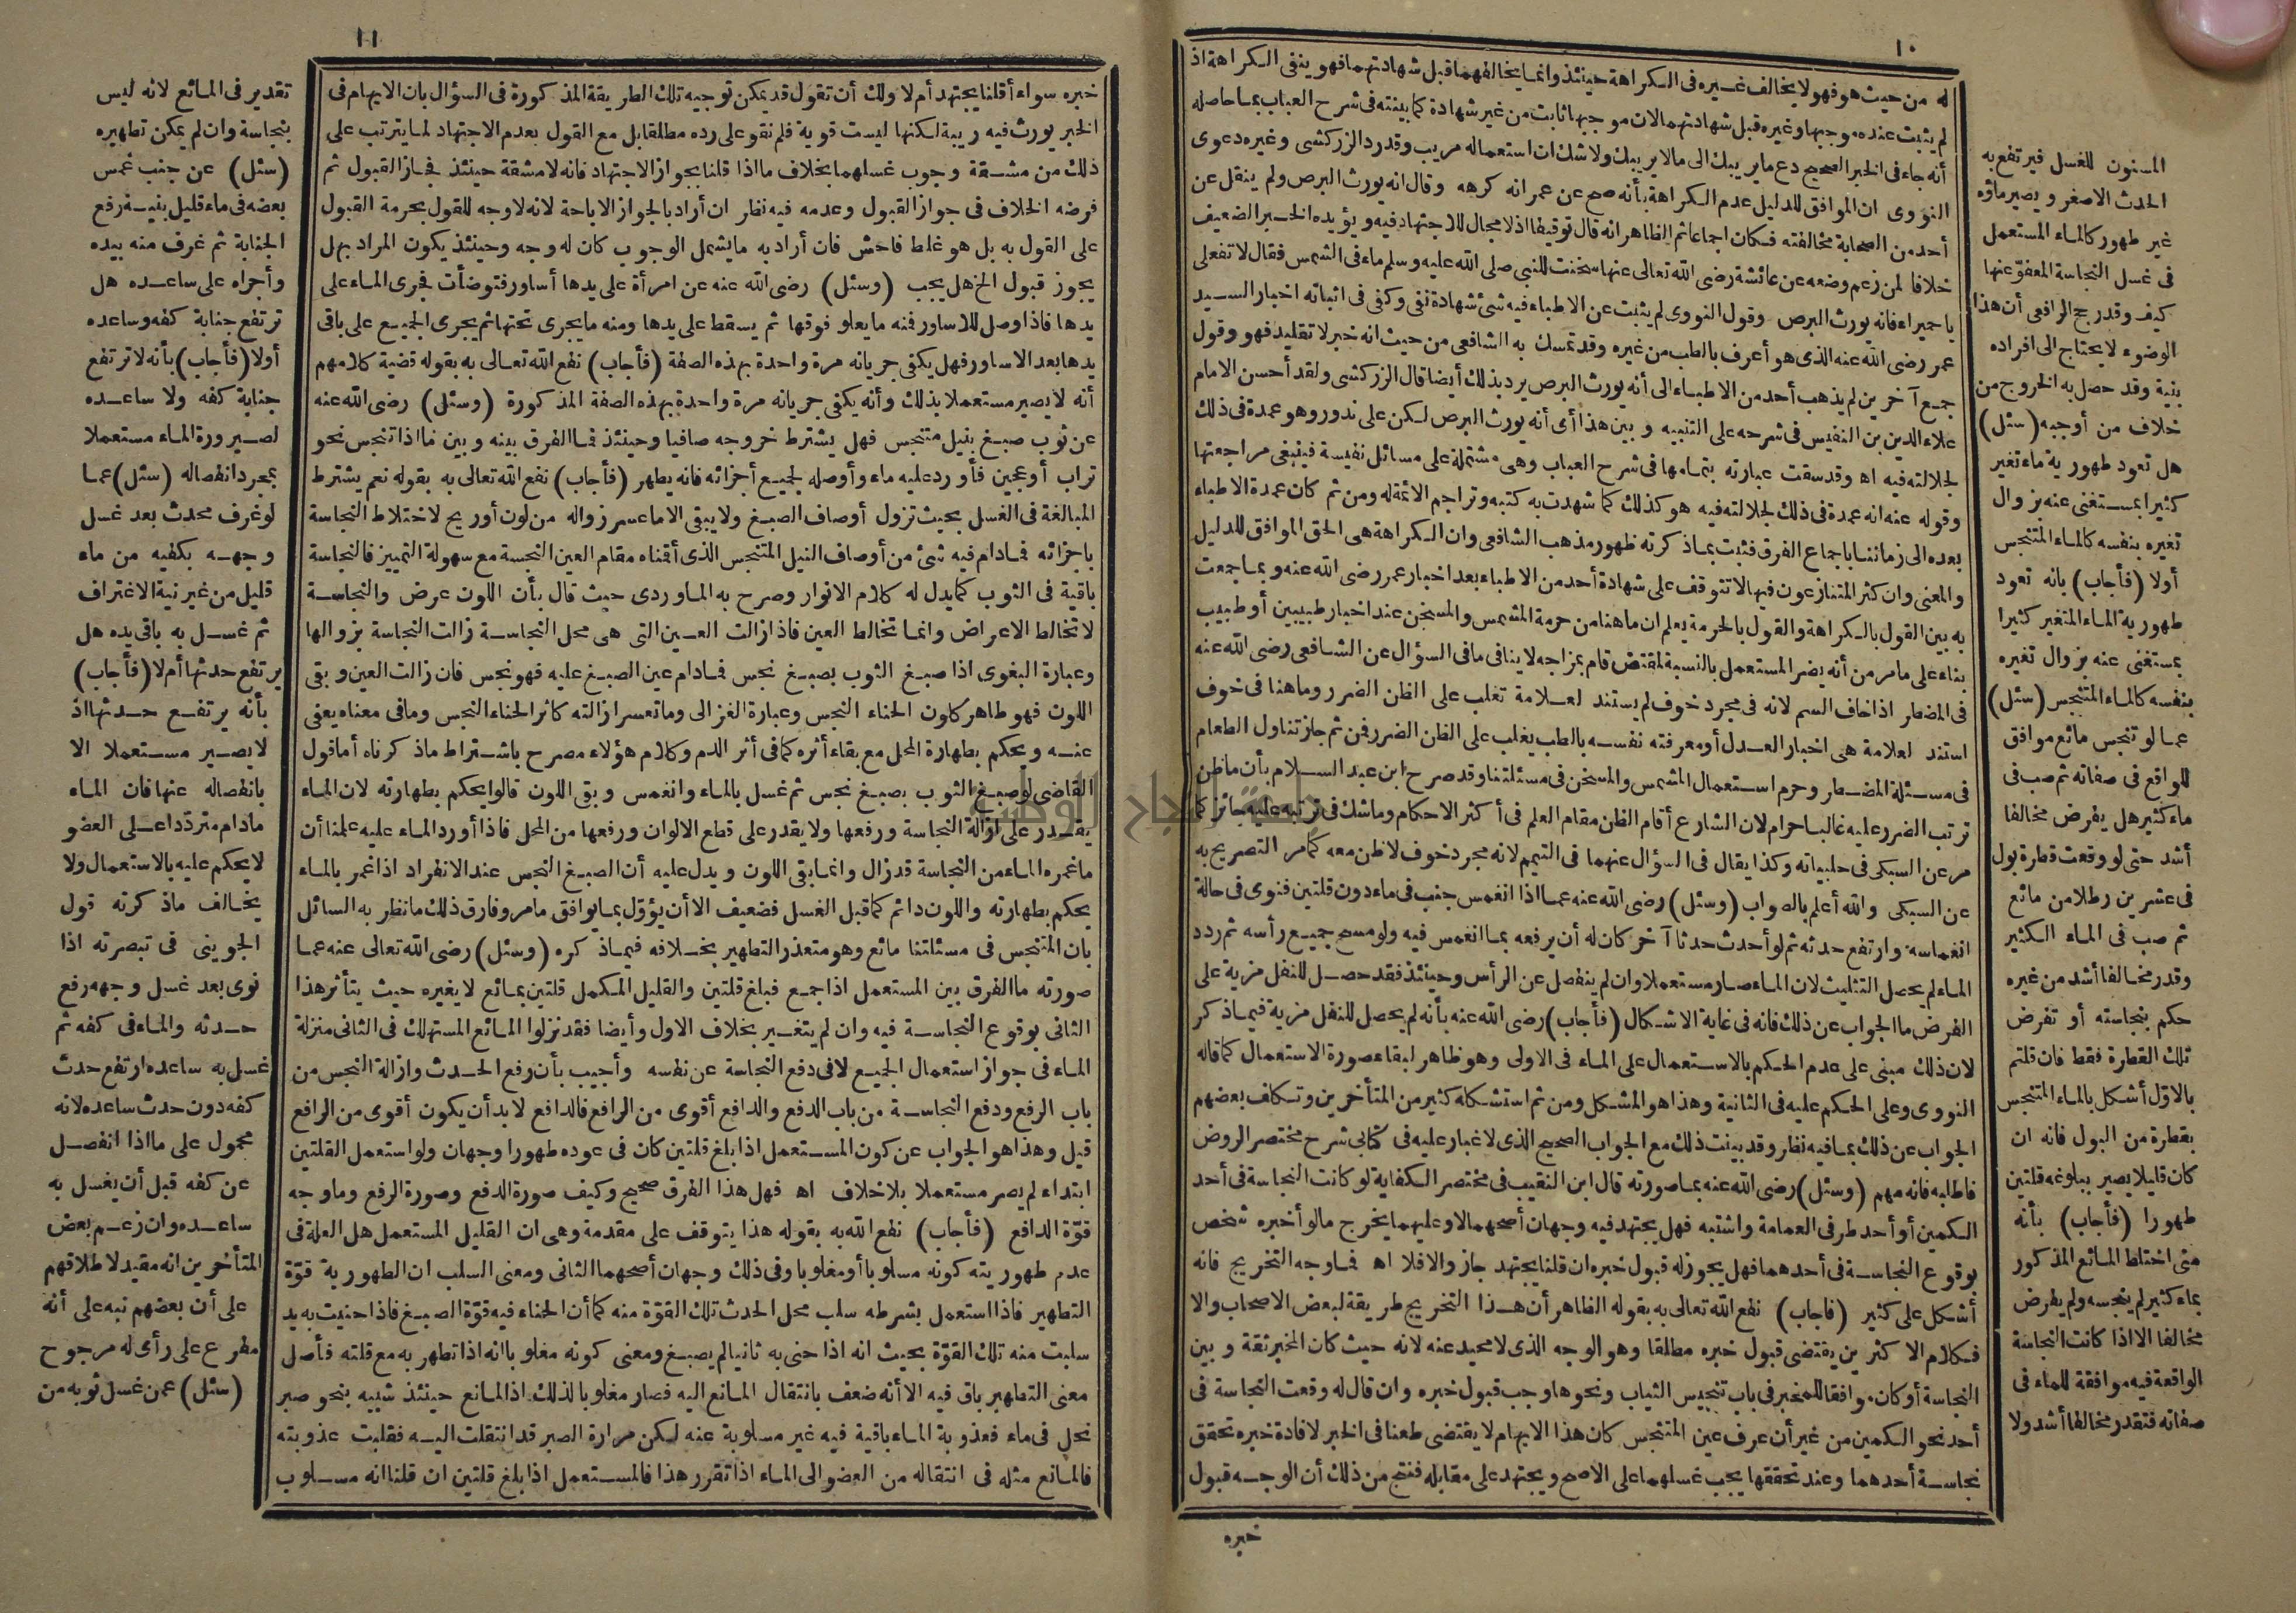 ١٠
له من حيث هو فهو لا يخالف غيره فى الكراهة حينئذ وانما يخالفهما قبل شهادتهما فهو ينفى الكراهة اذ
لم يثبت عنده موجبها وغيره قبل شهادتهما لان موجبها ثابت من غير شهادة كما بينته فى شرح العباب بما حاصله
أنه جاء فى الخبر الصحيح دع ما يريبك الى ما لا يريبك ولا شك ان استعماله مريب وقد رد الزركشى وغيره دعوى
النووى ان الموافق للدليل عدم الكراهة بأنه صح عن عمر انه كرهه وقال انه يورث البرص ولم ينقل عن
أحد من الصحابة مخالفته فكان اجماعا ثم الظاهر انه قال توقيفا اذ لا مجال للاجتهاد فيه ويؤيده الخبر الضعيف
خلافا لمن زعم وضعه عن عائشة رضى الله تعالى عنها سخنت للنبى صلى الله عليه وسلم ماء فى الشمس فقال لا تفعلى
يا حميراء فانه يورث البرص وقول النووى لم يثبت عن الاطباء فيه شئ شهادة نفى وكفى فى اثباته اخبار السيد
عمر رضى الله عنه الذى هو أعرف بالطب من غيره وقد تمسك به الشافعى من حيث انه خبر لا تقليد فهو وقول
جمع آخرين لم يذهب أحد من الاطباء الى أنه يورث البرص يرد بذلك أيضا قال الزركشى ولقد أحسن الامام
علاء الدين بن النفيس فى شرحه على التنبيه وبين هذا أى أنه يورث البرص لكن على ندور وهو عمدة فى ذلك
لجلالته فيه اه وقد سقت عبارته بتمامها فى شرح العباب وهى مشتملة على مسائل نفيسة فينبغى مراجعتها
وقوله عنه انه عمدة فى ذلك لجلالته فيه هو كذلك كما شهدت به كتبه وتراجم الائمة له ومن ثم كان عمدة الاطباء
بعده الى زماننا باجماع الفرق فثبت بما ذكرته ظهور مذهب الشافعى وان الكراهة هى الحق الموافق للدليل
والمعنى وان كثر المتنازعون فيها لا تتوقف على شهادة أحد من الاطباء بعد اخبار عمر رضى الله عنه وبما جمعت
به بين القول بالكراهة والقول بالحرمة يعلم ان ما هنا من حرمة المشمس والمسخن عند اخبار طبيبين أو طبيب
بناء على ما مر من أنه يضر المستعمل بالنسبة لمقتض قام بمزاجه لا ينافى ما فى السؤال عن الشافعى رضى الله عنه
فى المضطر اذا خاف السم لانه فى مجرد خوف لم يستند لعلامة تغلب على الظن الضرر وما هنا فى خوف
استند لعلامة هى اخبار العدل أو معرفته نفسه بالطب يغلب على الظن الضرر فمن ثم جاز تناول الطعام
فى مسئلة المضطر وحرم استعمال المشمس والمسخن فى مسئلتنا وقد صرح ابن عبد السلام بأن ما ظن
ترتب الضرر عليه غالبا حرام لان الشارع أقام الظن مقام العلم فى أكثر الاحكام وما شك فى ترتبه عليه جائز كما
مر عن السبكى فى حلبياته وكذا يقال فى السؤال عنهما فى التيمم لانه مجرد خوف لا ظن معه كما مر التصريح به
عن السبكى والله أعلم بالصواب (وسئل) رضى الله عنه عما اذا انغمس جنب فى ماء دون قلتين فنوى فى حالة
انغماسه وارتفع حدثه ثم لو أحدث حدثا آخر كان له أن يرفعه بما انغمس فيه ولو مسح جميع رأسه ثم ردد
الماء لم يحصل التثليث لان الماء صار مستعملا وان لم ينفصل عن الرأس وحينئذ فقد حصل للنفل مزية على
الفرض ما الجواب عن ذلك فانه فى غاية الاشكال (فأجاب) رضى الله عنه بأنه لم يحصل للنفل مزية فيما ذكر
لان ذلك مبنى على عدم الحكم بالاستعمال على الماء فى الاولى وهو ظاهر لبقاء صورة الاستعمال كما قاله
النووى وعلى الحكم عليه فى الثانية وهذا هو المشكل ومن ثم استشكله كثير من المتأخرين وتكلف بعضهم
الجواب عن ذلك بما فيه نظر وقد بينت ذلك مع الجواب الصحيح الذى لا غبار عليه فى كتابى شرح مختصر الروض
فاطلبه فانه مهم (وسئل) رضى الله عنه بما صورته قال ابن النقيب فى مختصر الكفاية لو كانت النجاسة فى أحد
الكمين أو أحد طرفى العمامة واشتبه فهل يجتهد فيه وجهان أصحهما لا وعليهما يخرج ما لو أخبره شخص
بوقوع النجاسة فى أحدهما فهل يجوز له قبول خبره ان قلنا يجتهد جاز والا فلا اه فما وجه التخريج فانه
أشكل على كثير (فاجاب) نفع الله تعالى به بقوله الظاهر أن هذا التخريج طريقة لبعض الاصحاب والا
فكلام الاكثرين يقتضى قبول خبره مطلقا وهو الوجه الذى لا محيد عنه لانه حيث كان المخبر ثقة وبين
النجاسة أو كان موافقا للمخبر فى باب تنجيس الثياب ونحوها وجب قبول خبره وان قال له وقعت النجاسة فى
أحد نحو الكمين من غير أن عرف عين المتنجس كان هذا الايهام لا يقتضى طعنا فى الخبر لافادة خبره تحقق
نجاسة أحدهما وعند تحققها يجب غسلهما على الاصح ويجتهد على مقابله فنتج من ذلك أن الوجه قبول
خبره
المسنون للغسل فيرتفع به
الحدث الاصغر ويصير ماؤه
غير طهور كالماء المستعمل
فى غسل النجاسة المعفو عنها
كيف وقد رجح الرافعى أن هذا
الوضوء لا يحتاج الى افراده
بنية وقد حصل به الخروج من
خلاف من أوجبه (سئل)
هل تعود طهورية ماء تغير
كثيرا بمستغنى عنه بزوال
تغيره بنفسه كالماء المتنجس
أولا (فأجاب) بانه تعود
طهورية الماء المتغير كثيرا
بمستغنى عنه بزوال تغيره
بنفسه كالماء المتنجس (سئل)
عما لو تنجس مائع موافق
للواقع فى صفاته ثم صب فى
ماء كثير هل يفرض مخالفا
أشد حتى لو وقعت قطرة بول
فى عشرين رطلا من مائع
ثم صب فى الماء الكثير
وقدر مخالفا أشد من غيره
حكم بنجاسته أو تفرض
تلك القطرة فقط فان قلتم
بالاول أشكل بالماء المتنجس
بقطرة من البول فانه ان
كان قليلا يصير ببلوغه قلتين
طهورا (فأجاب) بأنه
متى اختلط المائع المذكور
بماء كثير لم ينجسه ولم يفرض
مخالفا الا اذا كانت النجاسة
الواقعة فيه موافقة للماء فى
صفاته فتقدر مخالفا أشد ولا
١١
خبره سواء أقلنا يجتهد أم لا ولك أن تقول قد يمكن توجيه تلك الطريقة المذكورة فى السؤال بان الايهام فى
الخبر يورث فيه ريبة لكنها ليست قوية فلم نقو على رده مطلقا بل مع القول بعدم الاجتهاد لما يترتب على
ذلك من مشقة وجوب غسلهما بخلاف ما اذا قلنا بجواز الاجتهاد فانه لا مشقة حينئذ فجاز القبول ثم
فرضه الخلاف فى جواز القبول وعدمه فيه نظر ان أراد بالجواز الاباحة لانه لا وجه للقول بحرمة القبول
على القول به بل هو غلط فاحش فان أراد به ما يشمل الوجوب كان له وجه وحينئذ يكون المراد بهل
يجوز قبول الخ هل يجب (وسئل) رضى الله عنه عن امرأة على يدها أساور فتوضأت فجرى الماء على
يدها فاذا وصل للاساور فمنه ما يعلو فوقها ثم يسقط على يدها ومنه ما يجرى تحتها ثم يجرى الجميع على باقى
يدها بعد الاساور فهل يكفى جريانه مرة واحدة بهذه الصفة (فأجاب) نفع الله تعالى به بقوله قضية كلامهم
أنه لا يصير مستعملا بذلك وأنه يكفى جريانه مرة واحدة بهذه الصفة المذكورة (وسئل) رضى الله عنه
عن ثوب صبغ بنيل متنجس فهل يشترط خروجه صافيا وحينئذ فما الفرق بينه وبين ما اذا تنجس نحو
تراب أو عجين فأورد عليه ماء وأوصله لجميع أجزائه فانه يطهر (فأجاب) نفع الله تعالى به بقوله نعم يشترط
المبالغة فى الغسل بحيث تزول أوصاف الصبغ ولا يبقى الا ما عسر زواله من لون أو ريح لاختلاط النجاسة
باجزائه فما دام فيه شئ من أوصاف النيل المتنجس الذى أقناه مقام العين النجسة مع سهولة التمييز فالنجاسة
باقية فى الثوب كما يدل له كلام الانوار وصرح به الماوردى حيث قال بأن اللون عرض والنجاسة
لا تخالط الاعراض وانما تخالط العين فاذا زالت العين التى هى محل النجاسة زالت النجاسة بزوالها
وعبارة البغوى اذا صبغ الثوب بصبغ نجس فما دام عين الصبغ عليه فهو نجس فان زالت العين وبقى
اللون فهو طاهر كلون الحناء النجس وعبارة الغزالى وما تعسر ازالته كاثر الحناء النجس وما فى معناه يعفى
عنه ويحكم بطهارة المحل مع بقاء أثره كما فى أثر الدم وكلام هؤلاء مصرح باشتراط ما ذكرناه أما قول
القاضى لو صبغ الثوب بصبغ نجس ثم غسل بالماء وانغمس وبقى اللون قالوا يحكم بطهارته لان الماء
يقدر على ازالة النجاسة ورفعها ولا يقدر على قطع الالوان ورفعها من المحل فاذا أورد الماء عليه علمنا أن
ما غمره الماء من النجاسة قد زال وانما بقى اللون ويدل عليه أن الصبغ النجس عند الانفراد اذا غمر بالماء
يحكم بطهارته واللون دائم كما قبل الغسل فضعيف الا أن يؤوّل بما يوافق ما مر وفارق ذلك ما نظر به السائل
بان المتنجس فى مسئلتنا مائع وهو متعذر التطهير بخلافه فيما ذكره (وسئل) رضى الله تعالى عنه عما
صورته ما الفرق بين المستعمل اذا جمع فبلغ قلتين والقليل المكمل قلتين بمائع لا يغيره حيث يتأثر هذا
الثانى بوقوع النجاسة فيه وان لم يتغير بخلاف الاول وأيضا فقد نزلوا المائع المستهلك فى الثانى منزلة
الماء فى جواز استعمال الجميع لا فى دفع النجاسة عن نفسه وأجيب بأن رفع الحدث وازالة النجس من
باب الرفع ودفع النجاسة من باب الدفع والدافع أقوى من الرافع فالدافع لا بد أن يكون أقوى من الرافع
قيل وهذا هو الجواب عن كون المستعمل اذا بلغ قلتين كان فى عوده طهورا وجهان ولو استعمل القلتين
ابتداء لم يصر مستعملا بلا خلاف اه فهل هذا الفرق صحيح وكيف صورة الدفع وصورة الرفع وما وجه
قوّة الدافع (فأجاب) نفع الله به بقوله هذا يتوقف على مقدمة وهى ان القليل المستعمل هل العلة فى
عدم طهوريته كونه مسلوبا أو مغلوبا وفى ذلك وجهان أصحهما الثانى ومعنى السلب ان الطهورية قوّة
التطهير فاذا استعمل بشرطه سلب محل الحدث تلك القوّة منه كما أن الحناء فيه قوّة الصبغ فاذا حنيت به يد
سلبت منه تلك القوّة بحيث انه اذا حنى به ثانيا لم يصبغ ومعنى كونه مغلوبا انه اذا تطهر به مع قلته فأصل
معنى التطهير باق فيه الا أنه ضعف بانتقال المانع اليه فصار مغلوبا لذلك اذ المانع حينئذ شبيه بنحو صبر
نحل فى ماء فعذوبة الماء باقية فيه غير مسلوبة عنه لكن مرارة الصبر قد انتقلت اليه فغلبت عذوبته
فالمانع مثله فى انتقاله من العضو الى الماء اذا تقرر هذا فالمستعمل اذا بلغ قلتين ان قلنا انه مسلوب
تقدير فى المائع لانه ليس
بنجاسة وان لم يمكن تطهيره
(سئل) عن جنب غمس
بعضه فى ماء قليل بنية رفع
الجنابة ثم غرف منه بيده
وأجراه على ساعده هل
ترتفع جنابة كفه وساعده
أولا (فأجاب) بأنه لا ترتفع
جنابة كفه ولا ساعده
لصيرورة الماء مستعملا
بمجرد انفصاله (سئل) عما
لو غرف محدث بعد غسل
وجهه بكفيه من ماء
قليل من غير نية الاغتراف
ثم غسل به باقى يده هل
يرتفع حدثها أم لا (فأجاب)
بأنه يرتفع حدثها اذ
لا يصير مستعملا الا
بانفصاله عنها فان الماء
ما دام مترددا على العضو
لا يحكم عليه بالاستعمال ولا
يخالف ما ذكرته قول
الجوينى فى تبصرته اذا
نوى بعد غسل وجهه رفع
حدثه والماء فى كفه ثم
غسل به ساعده ارتفع حدث
كفه دون حدث ساعده لانه
محمول على ما اذا انفصل
عن كفه قبل أن يغسل به
ساعده وان زعم بعض
المتأخرين انه مقيد لاطلاقهم
على أن بعضهم نبه على أنه
مفرع على رأى له مرجوح
(سئل) عمن غسل ثوبه من